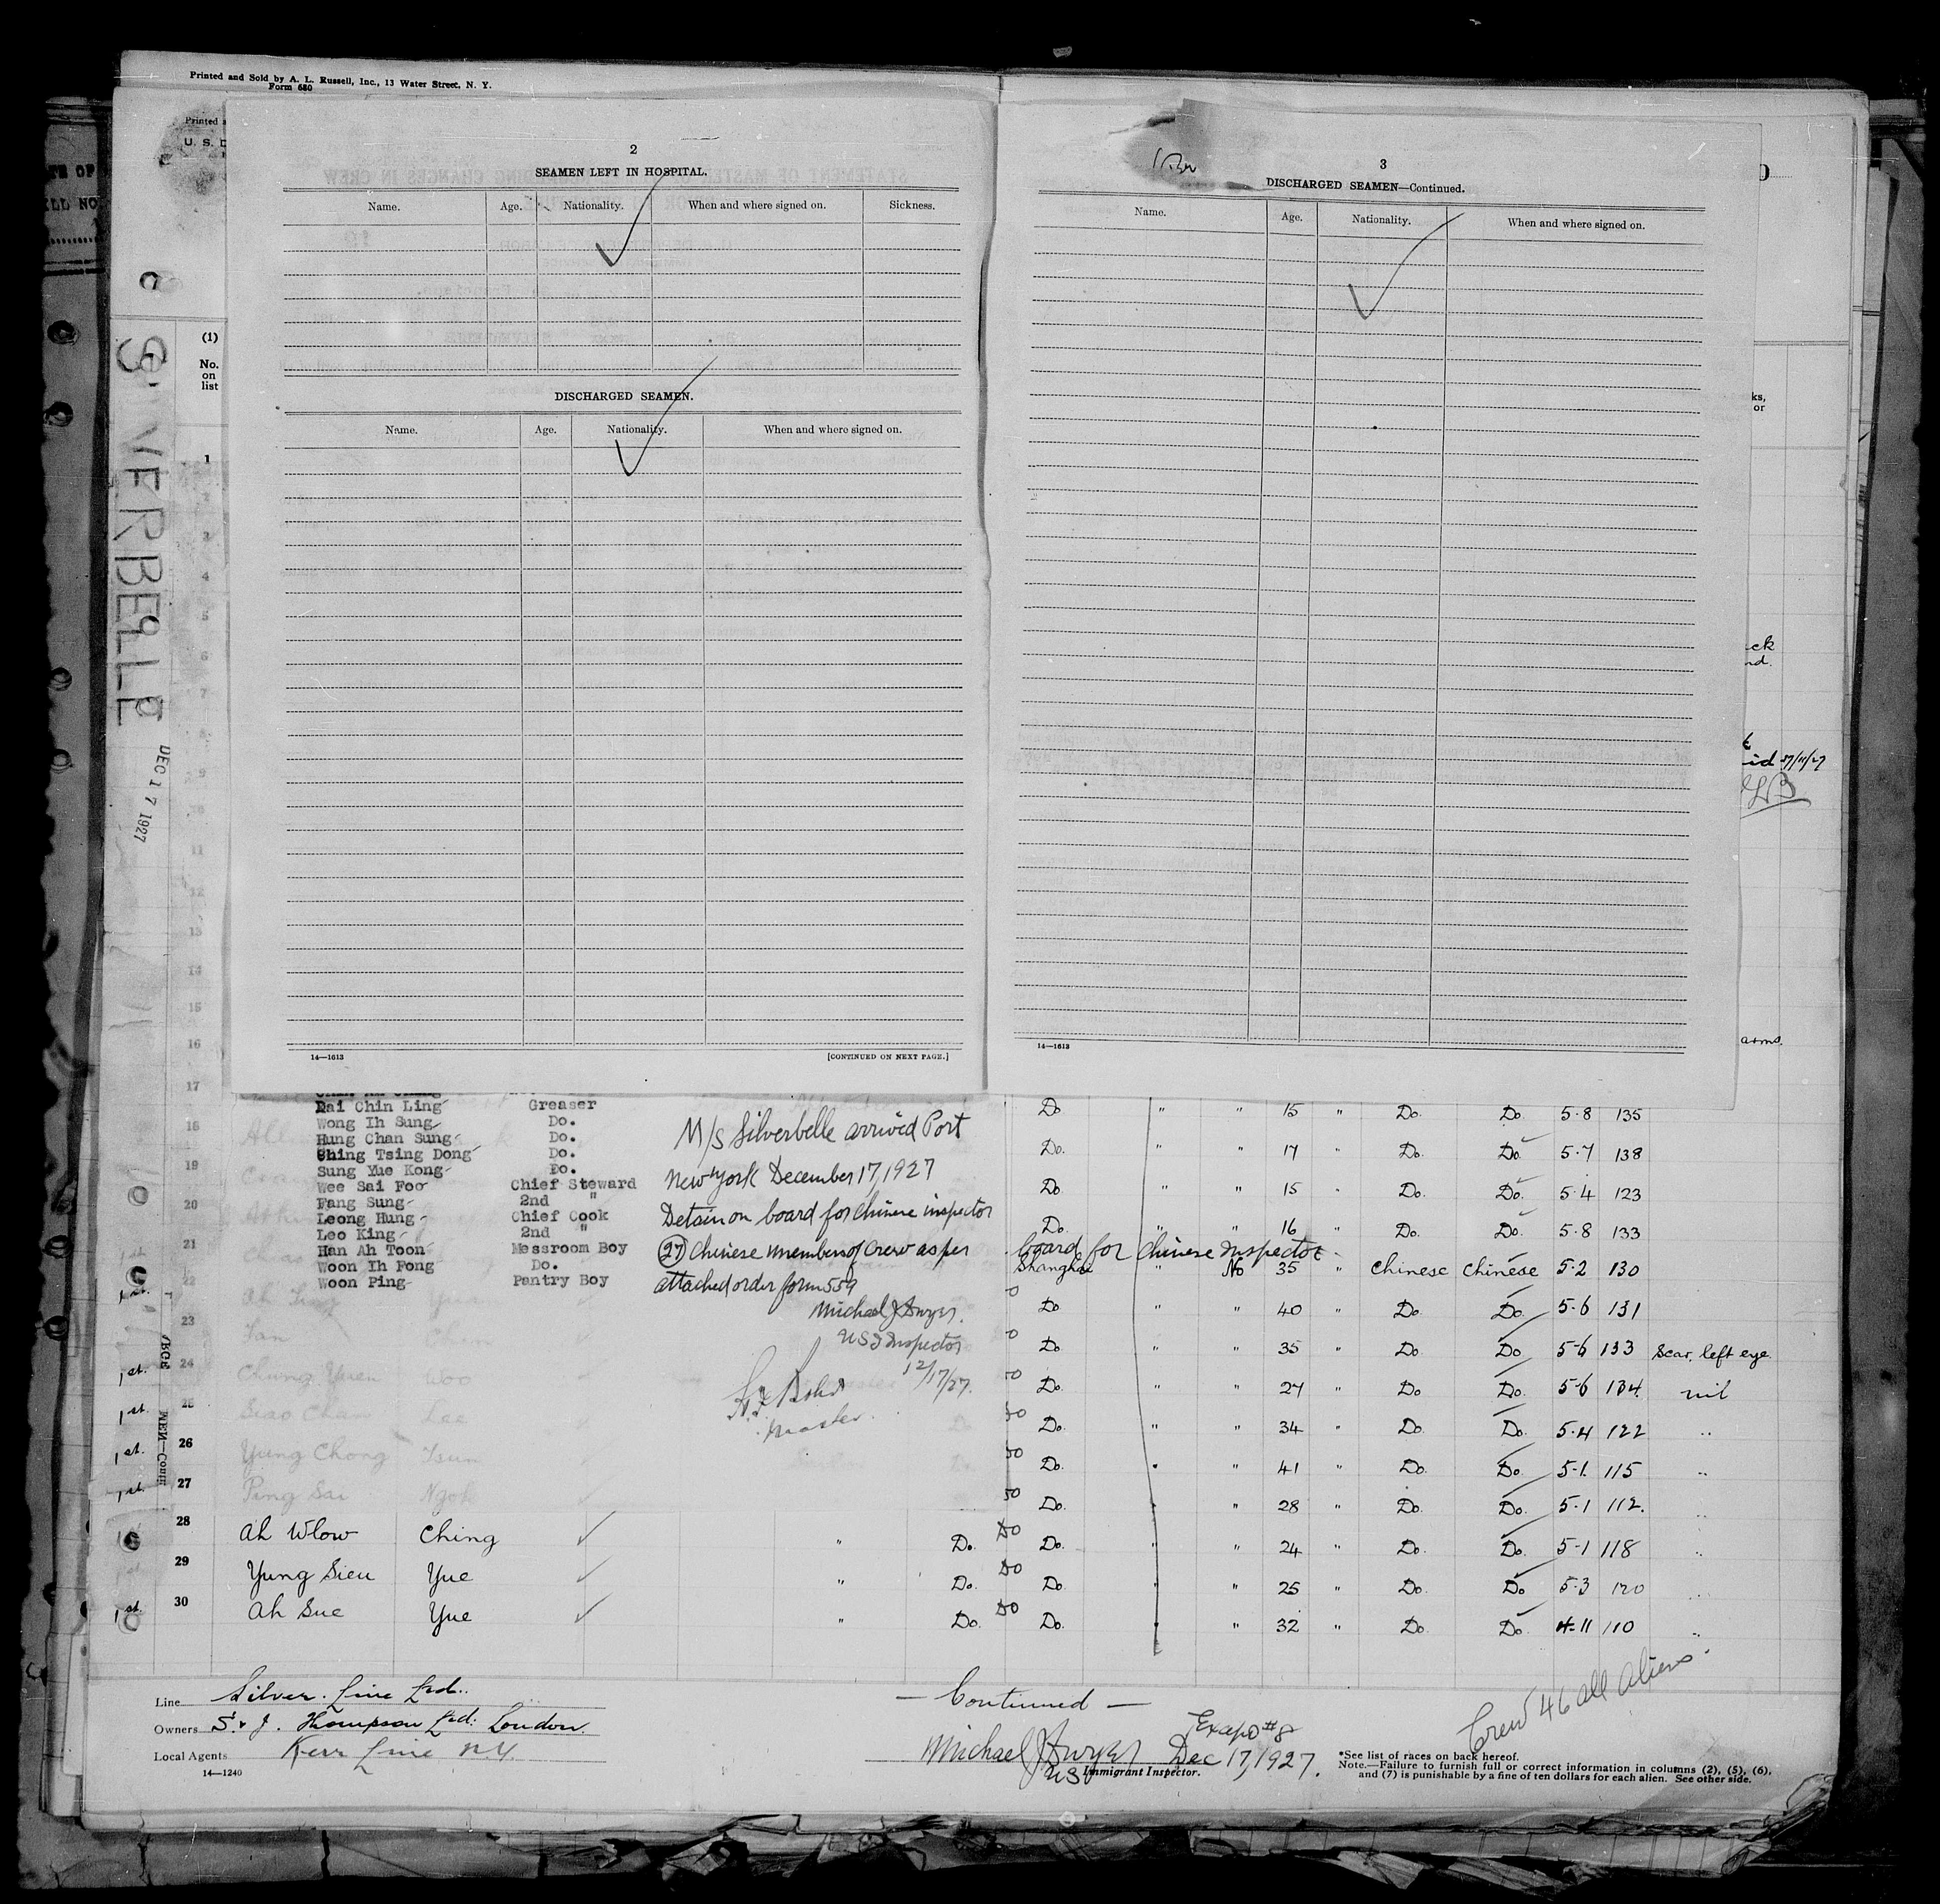 Printed and Sold by A. L. Russell, Inc., 13 Water Street, N. Y.
Form 680
Printed a
U. S. D
SILVERBELLE
DEC 17 1927
(1)
No.
on
list
2
SEAMEN LEFT IN HOSPITAL.
Name. Age. Nationality. When and where signed on. Sickness.
DISCHARGED SEAMEN.
Name. Age. Nationality. When and where signed on.
14—1613 [CONTINUED ON NEXT PAGE.]
3
DISCHARGED SEAMEN—Continued.
Name. Age. Nationality. When and where signed on.
14—1613
ks,
or
ck
nd.
id 27/11/27
arms.
Dai Chin Ling Greaser
Wong Ih Sung Do.
Hung Chan Sung Do.
Ching Tsing Dong Do.
Sung Yue Kong Do.
Wee Sai Foo Chief Steward
Fang Sung 2nd "
Leong Hung Chief Cook
Leo King 2nd "
Han Ah Toon Messroom Boy
Woon Ih Fong Do.
Woon Ping Pantry Boy
M/s Silverbelle arrived Port
New York December 17, 1927
Detain on board for Chinese inspector
(27) Chinese members of Crew as per
attached order form 559
Michael J Dwyer.
US I Inspector
12/17/27.
Master.
Do " " 15 " Do. Do. 5-8 135
Do. " " 17 " Do. Do. 5-7 138
Do " " 15 " Do. Do. 5-4 123
Do. " " 16 " Do. Do. 5-8 133
board for Chinese Inspector
Shanghai " No 35 " Chinese Chinese 5-2 130
Do " " 40 " Do. Do. 5-6 131
Do " " 35 " Do Do 5-6 133 Scar, left eye.
Do. " " 27 " Do. Do. 5-6 134. nil
Do. " " 34 " Do. Do. 5-4 122 "
Do. " " 41 " Do. Do. 5-1. 115 "
Do. " " 28 " Do. Do. 5-1 112. "
28 Ah Wlow Ching " Do. Do Do. " " 24 " Do. Do. 5-1 118 "
29 Yung Sieu Yue " Do. Do Do. " " 25 " Do. Do 5-3 120 "
30 Ah Sue Yue " Do. Do Do. " " 32 " Do. Do. 4-11 110 "
18
19
20
21
22
23
24 Chung Yuen Woo
25 Siao Chan Lee
26 Yung Chong Tsun
27 Ping Sai Ngoh
Line Silver Line Ltd.
Owners S. & J. Thompson Ltd: London.
Local Agents Kerr Line N.Y.
14—1240
— Continued —
Michael J Dwyer Dec 17, 1927.
US Immigrant Inspector.
Crew 46 all aliens
*See list of races on back hereof.
Note.—Failure to furnish full or correct information in columns (2), (5), (6),
and (7) is punishable by a fine of ten dollars for each alien. See other side.